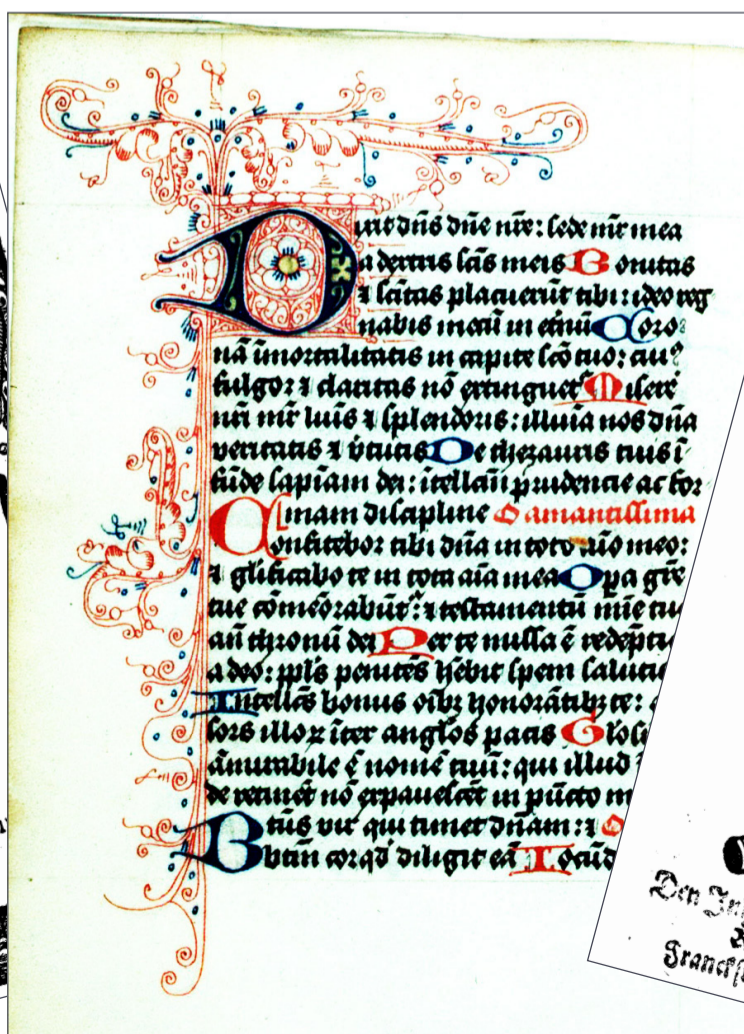 Dixit dñs dñe nr̄e: sede mr̄ mea
a dextris sc̄is meis Bonitas
⁊ sc̄itas placuerūt tibi: ideo reg
nabis mecū in etnū Coro
nā īmortalitatis in capite sc̄o tuo: cui⁹
fulgor ⁊ claritas nō extinguet᷑ Miserē
nr̄i mr̄ luīs ⁊ splendoris: illuīa nos dn̄a
veritatis ⁊ v̄tutis De thezauris tuis ī
fūde sapīam dei: ītellc̄ū prudencie ac for
mam discipline O amantissima
Confitebor tibi dn̄a in toto
⁊ gl̄ificabo te in tota aīa mea Opa grē
tue cōmēorabūt᷑: ⁊ testamentū mīe tu
añ thronū dei Per te nulla ē redēpti
a deo: ppl̄s penitēs hēbit spem saluti
Intellc̄s bonus oībꝫ honorātibꝫ te:
sors illoꝝ īter angl̄os pacis Glosi
āmirabile ē nomē tuū: qui illud
de retinēt nō expauescēt in pūcto m
Btūs vir qui timet dn̄am: ⁊
Bbtīn cor qd̄ diligit eā Iocūd
Den
Franckf